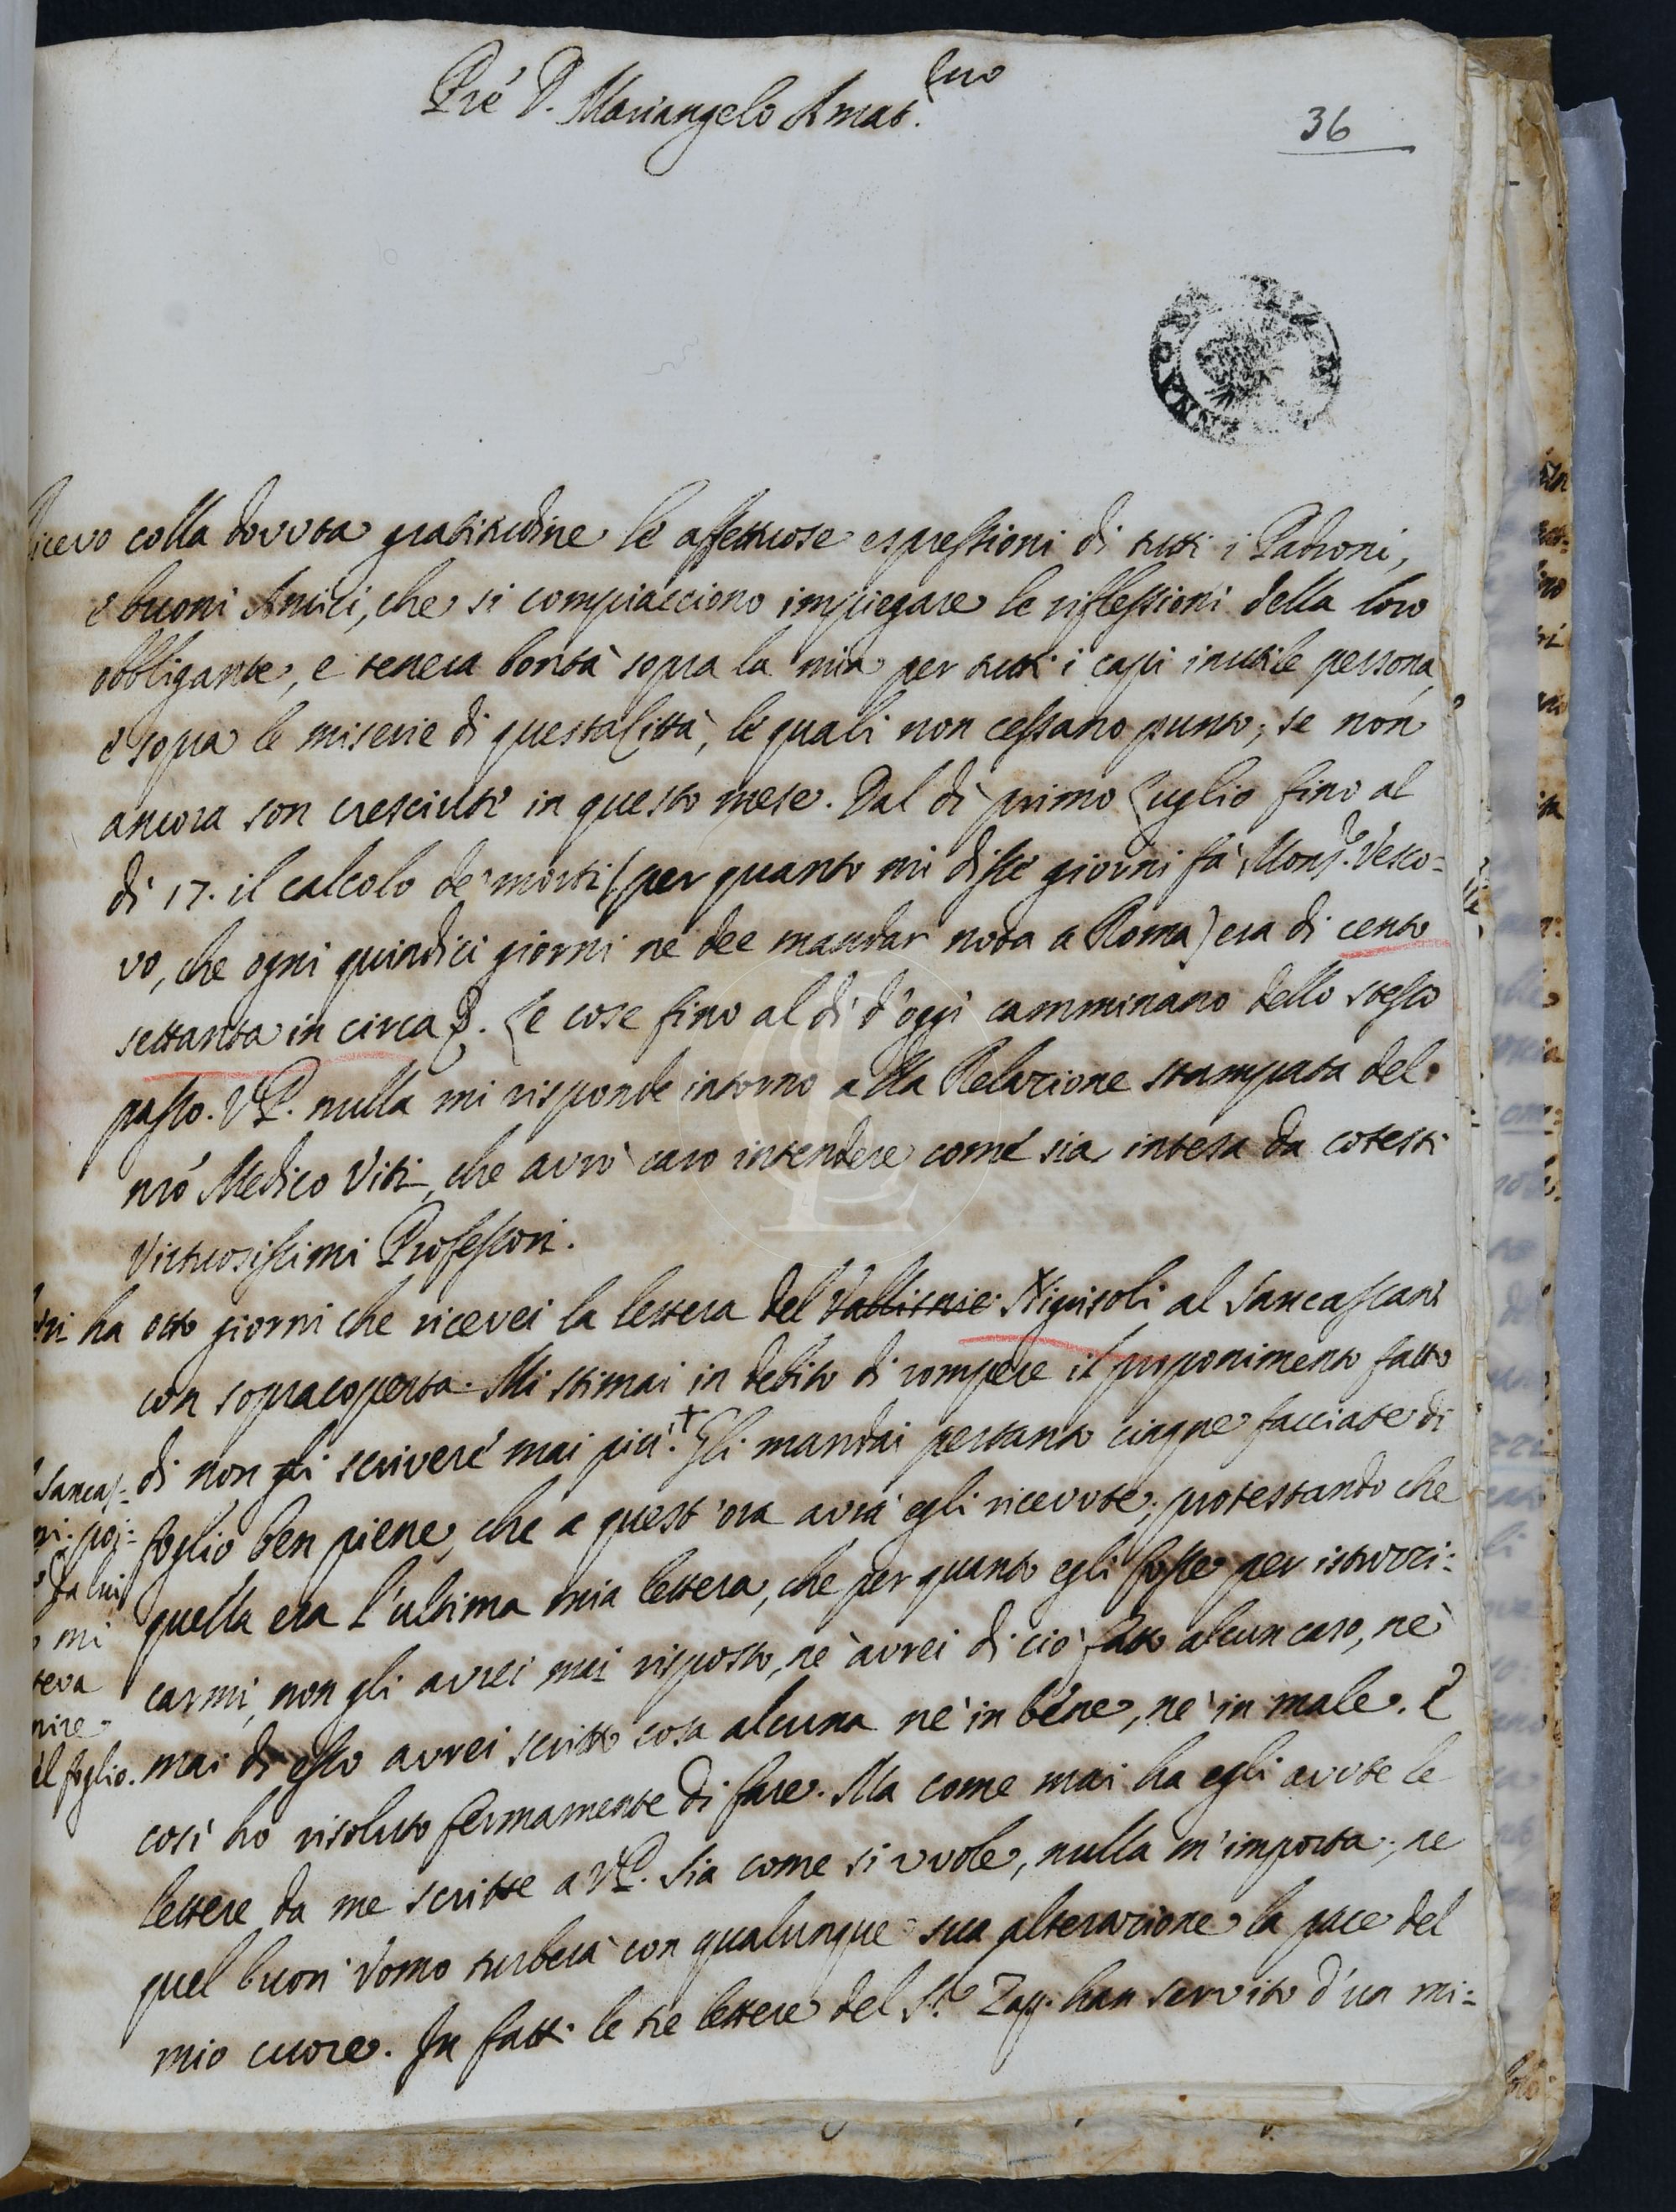 Prē D. Mariangelo Amat.mo
36
icevo colla dovuta gratitudine le affettuose espressioni di tutti i Padroni,
e buoni Amici, che si compiacciono impiegare le riflessioni della loro
obbligante, e tenera bontà sopra la mia per tutti i capi inutile persona,
e sopra le miserie di questa Città, le quali non cessano punto; se non
ancora son cresciute in questo mese. Dal dì primo Luglio fino al
dì 17. il calcolo de' morti (per quanto mi disse giorni fà Mons.re Vesco=
vo, che ogni quindici giorni ne dee mandar nota a Roma) era di cento
settanta in circa. Le cose fino al dì d'oggi camminano dello stesso
passo. V.P. nulla mi risponde intorno alla Relazione stampata del
nrō Medico Viti, che avrò caro intendere come sia intesa da cotesti
Virtuosissimi Professori.
ha otto giorni che ricevei la lettera del Vallisnie: Nigrisoli al Sancassani
con sopracoperta. Mi stimai in debito di rompere il proponimento fatto
di non gli scrivere mai più.+ Gli mandai pertanto cinque facciate di
foglio ben piene, che a quest'ora avrà egli ricevute; protestando che
quella era l'ultima mia lettera, che per quanto egli fosse per istuzzi=
carmi, non gli avrei mai risposto, nè avrei di ciò fatto alcun caso, nè
mai di esso avrei scritto cosa alcuna nè in bene, nè in male. E
così ho risoluto fermamente di fare. Ma come mai ha egli avute le
lettere da me scritte a V.P. Sia come si vuole, nulla m'importa; ne
quel buon Uomo turberà con qualunque sua alterazione la pace del
mio cuore. In fatti le tre lettere del S.r Zapp. han servito d'un mi=
Sancas=
ni: poi=
da lui
mi
teva
nire
el foglio.